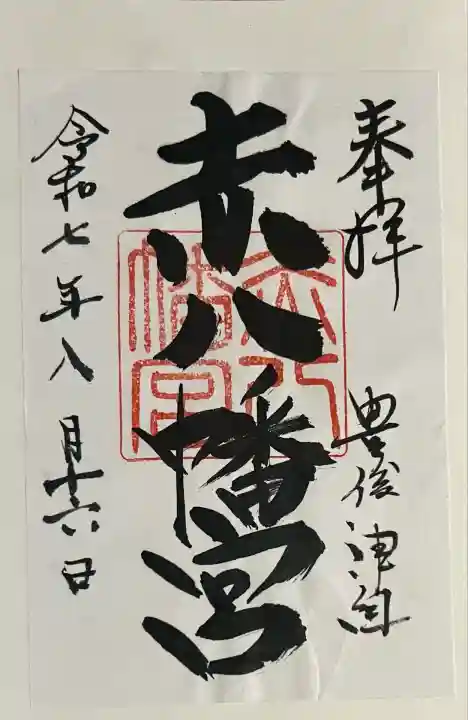 奉拝
豊後津留
赤八幡宮
赤八
幡宮
令和七年八月十六日